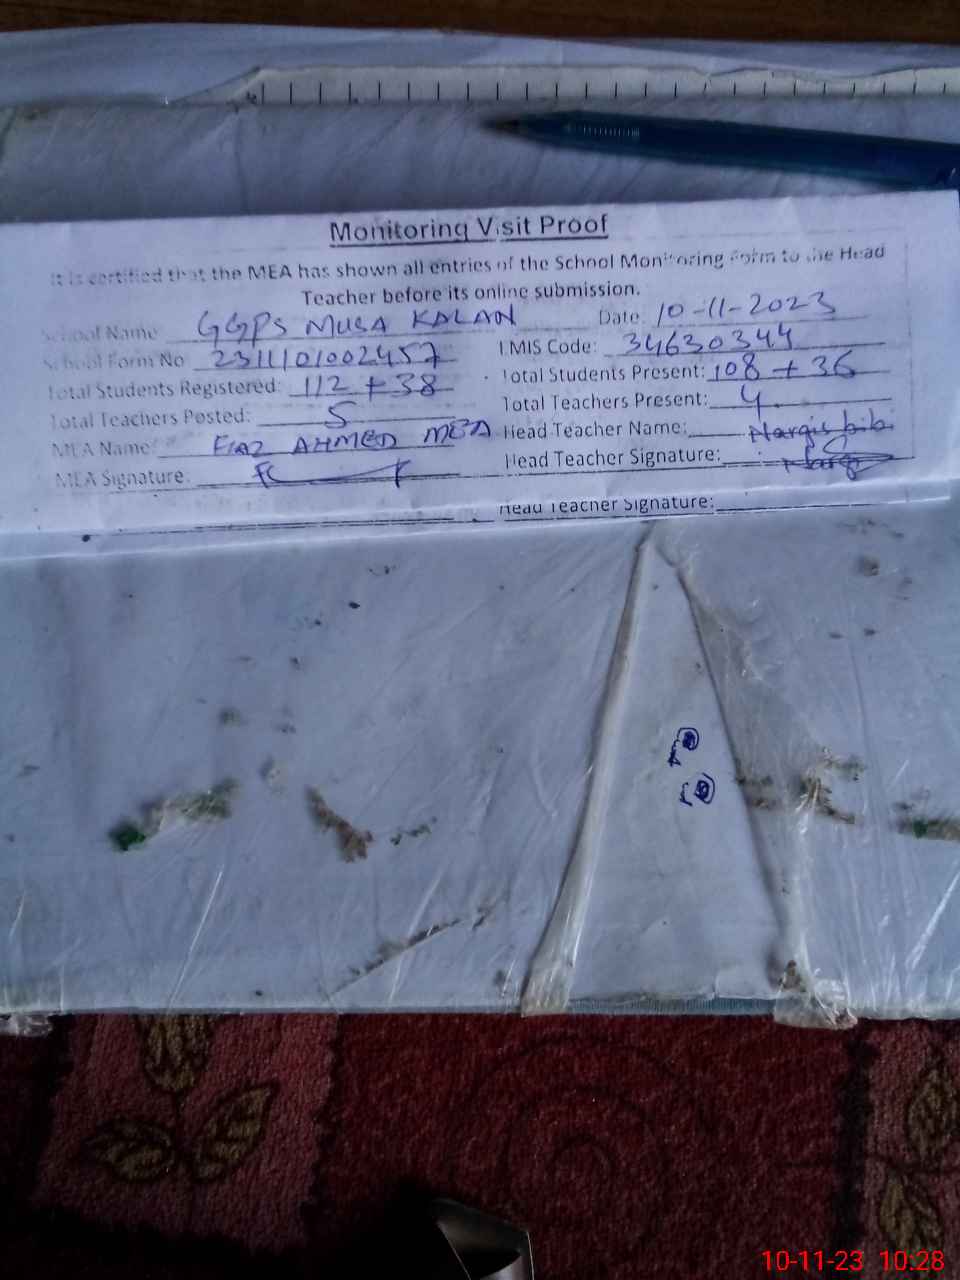 Monitoring Visit Proof
It is certified that the MEA has shown all entries of the School Monitoring Form to the Head
Teacher before its online submission.
School Name GGPS MUSA KALAN Date: 10-11-2023
School Form No 2311101002457 EMIS Code: 34630344
Total Students Registered: 112 + 38 Total Students Present: 108 + 36
Total Teachers Posted: 5 Total Teachers Present: 4
MEA Name: AHMED MEA Head Teacher Name: Nargis bibi
MEA Signature: Head Teacher Signature:
Head Teacher Signature:
10-11-23 10:28